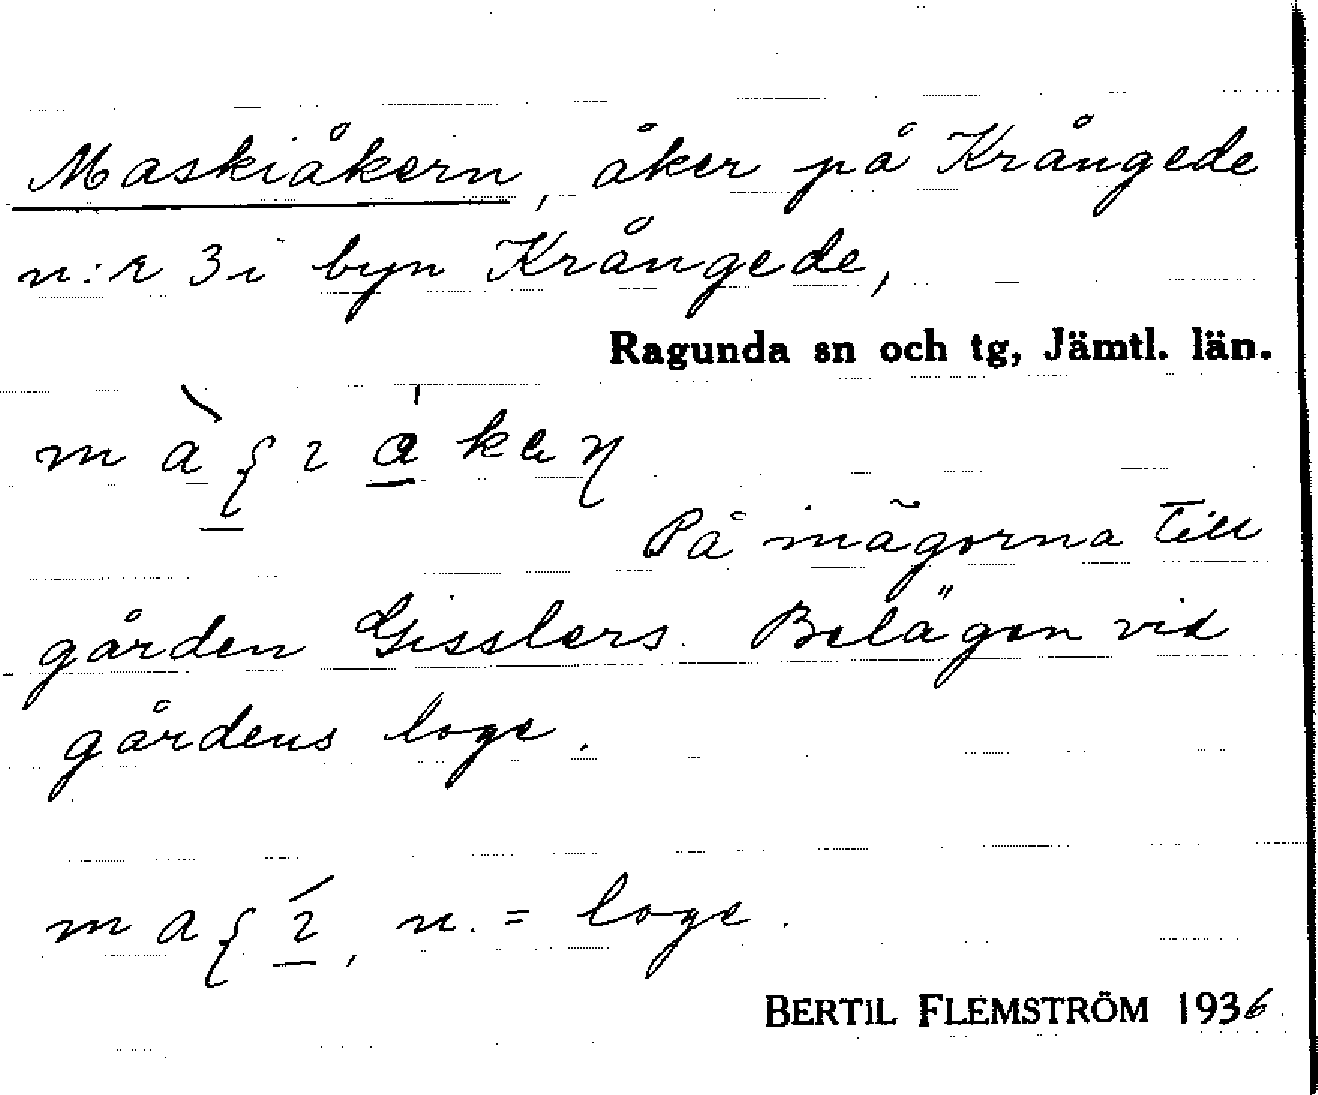 Maskiåkern, åker på Krångede
n:r 3 i byn Krångede,
Ragunda sn och tg, Jämtl. län.
På inägorna till
gården Gisslers. Belägen vid
gårdens loge.
n. = loge.
BERTIL FLEMSTRÖM 1936